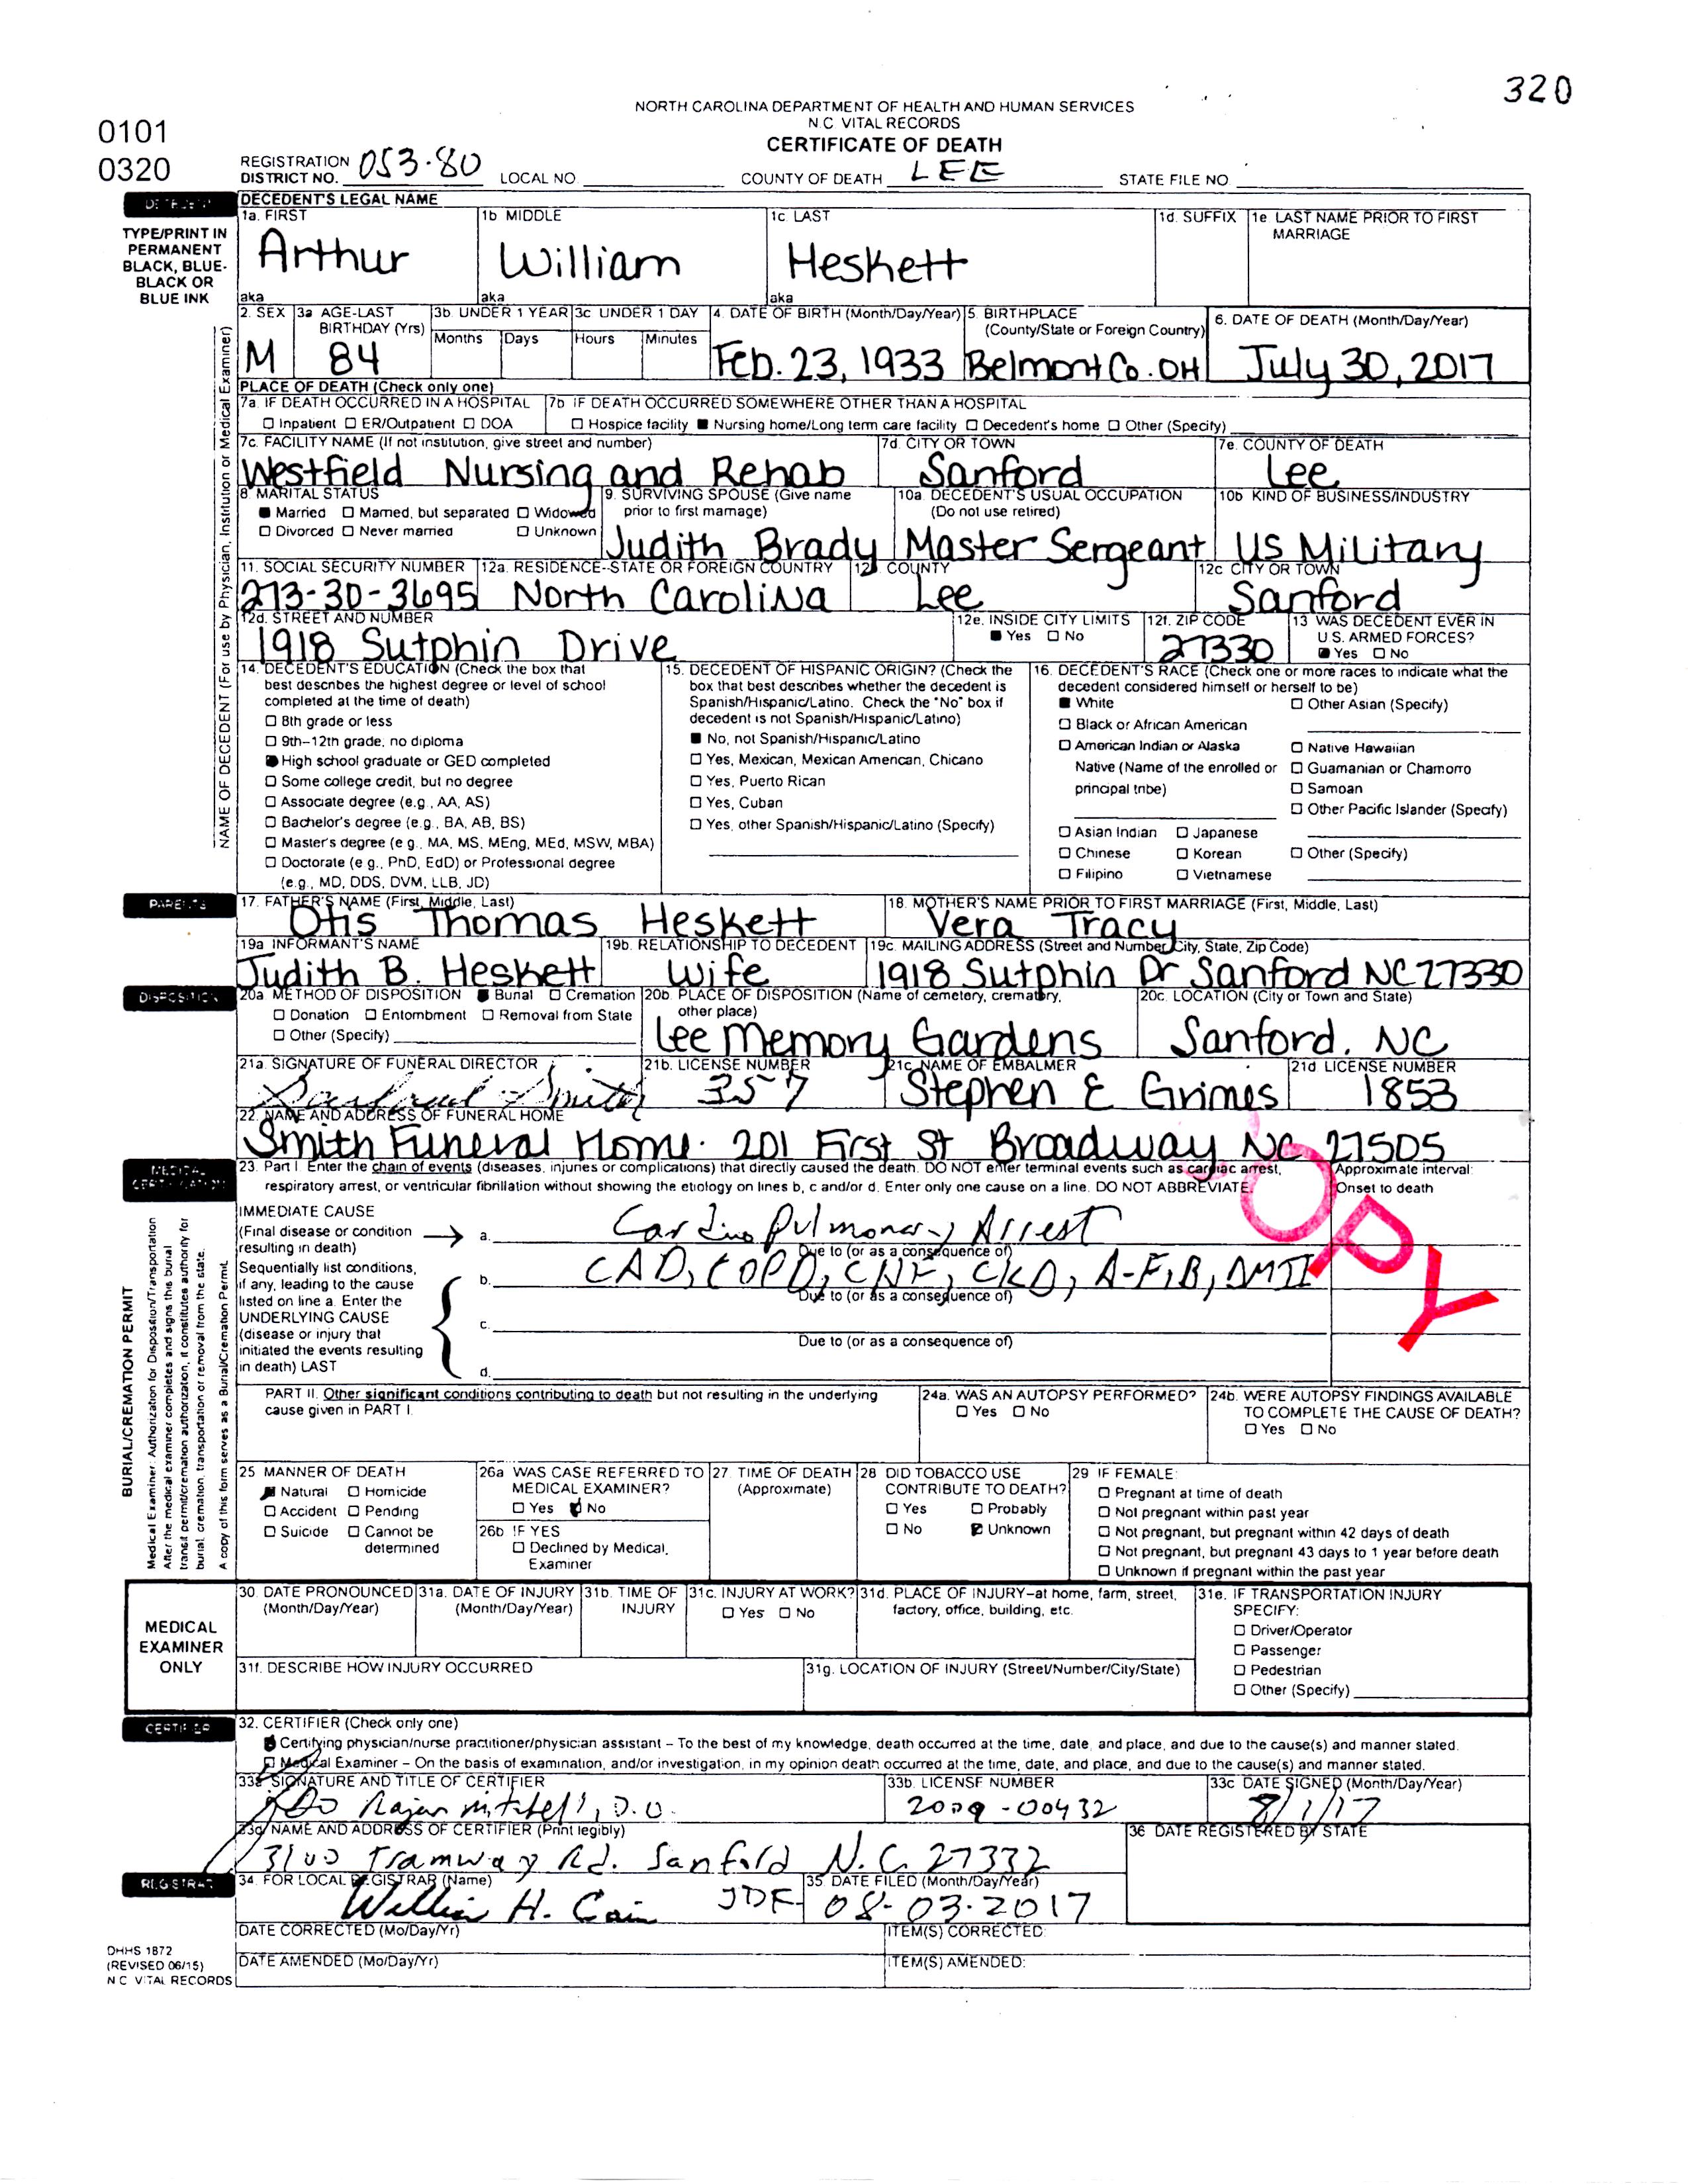 320
NORTH CAROLINA DEPARTMENT OF HEALTH AND HUMAN SERVICES
N.C. VITAL RECORDS
CERTIFICATE OF DEATH
0101
0320
REGISTRATION DISTRICT NO. 053-80 LOCAL NO. COUNTY OF DEATH LEE STATE FILE NO.
DECEDENT
TYPE/PRINT IN PERMANENT BLACK, BLUE-BLACK OR BLUE INK
DECEDENT'S LEGAL NAME
1a. FIRST 1b MIDDLE 1c. LAST 1d. SUFFIX 1e LAST NAME PRIOR TO FIRST MARRIAGE
Arthur William Heskett
aka aka aka
2. SEX 3a AGE-LAST BIRTHDAY (Yrs) 3b. UNDER 1 YEAR 3c UNDER 1 DAY 4. DATE OF BIRTH (Month/Day/Year) 5. BIRTHPLACE (County/State or Foreign Country) 6. DATE OF DEATH (Month/Day/Year)
Months Days Hours Minutes
M 84 Feb. 23, 1933 Belmont Co. OH July 30, 2017
PLACE OF DEATH (Check only one)
7a. IF DEATH OCCURRED IN A HOSPITAL 7b IF DEATH OCCURRED SOMEWHERE OTHER THAN A HOSPITAL
☐ Inpatient ☐ ER/Outpatient ☐ DOA ☐ Hospice facility ■ Nursing home/Long term care facility ☐ Decedent's home ☐ Other (Specify)
7c. FACILITY NAME (If not institution, give street and number) 7d. CITY OR TOWN 7e. COUNTY OF DEATH
Westfield Nursing and Rehab Sanford Lee
8 MARITAL STATUS 9. SURVIVING SPOUSE (Give name prior to first marriage) 10a. DECEDENT'S USUAL OCCUPATION (Do not use retired) 10b KIND OF BUSINESS/INDUSTRY
■ Married ☐ Married, but separated ☐ Widowed
☐ Divorced ☐ Never married ☐ Unknown
Judith Brady Master Sergeant US Military
11. SOCIAL SECURITY NUMBER 12a. RESIDENCE--STATE OR FOREIGN COUNTRY 12b COUNTY 12c CITY OR TOWN
273-30-3695 North Carolina Lee Sanford
12d. STREET AND NUMBER 12e. INSIDE CITY LIMITS 12f. ZIP CODE 13 WAS DECEDENT EVER IN U.S. ARMED FORCES?
1918 Sutphin Drive ■ Yes ☐ No 27330 ■ Yes ☐ No
14. DECEDENT'S EDUCATION (Check the box that best describes the highest degree or level of school completed at the time of death)
☐ 8th grade or less
☐ 9th–12th grade; no diploma
■ High school graduate or GED completed
☐ Some college credit, but no degree
☐ Associate degree (e.g., AA, AS)
☐ Bachelor's degree (e.g., BA, AB, BS)
☐ Master's degree (e g., MA, MS, MEng, MEd, MSW, MBA)
☐ Doctorate (e g., PhD, EdD) or Professional degree
(e.g., MD, DDS, DVM, LLB, JD)
15. DECEDENT OF HISPANIC ORIGIN? (Check the box that best describes whether the decedent is Spanish/Hispanic/Latino. Check the "No" box if decedent is not Spanish/Hispanic/Latino)
■ No, not Spanish/Hispanic/Latino
☐ Yes, Mexican, Mexican American, Chicano
☐ Yes, Puerto Rican
☐ Yes, Cuban
☐ Yes, other Spanish/Hispanic/Latino (Specify)
16. DECEDENT'S RACE (Check one or more races to indicate what the decedent considered himself or herself to be)
■ White
☐ Black or African American
☐ American Indian or Alaska
Native (Name of the enrolled or
principal tribe)
☐ Asian Indian ☐ Japanese
☐ Chinese ☐ Korean
☐ Filipino ☐ Vietnamese
☐ Other Asian (Specify)
☐ Native Hawaiian
☐ Guamanian or Chamorro
☐ Samoan
☐ Other Pacific Islander (Specify)
☐ Other (Specify)
NAME OF DECEDENT (For use by Physician, Institution or Medical Examiner)
PARENTS
17. FATHER'S NAME (First, Middle, Last) 18. MOTHER'S NAME PRIOR TO FIRST MARRIAGE (First, Middle, Last)
Otis Thomas Heskett Vera Tracy
19a INFORMANT'S NAME 19b. RELATIONSHIP TO DECEDENT 19c. MAILING ADDRESS (Street and Number, City, State, Zip Code)
Judith B. Heskett Wife 1918 Sutphin Dr Sanford NC 27330
DISPOSITION
20a METHOD OF DISPOSITION ■ Burial ☐ Cremation
☐ Donation ☐ Entombment ☐ Removal from State
☐ Other (Specify)
20b. PLACE OF DISPOSITION (Name of cemetery, crematory, other place) 20c. LOCATION (City or Town and State)
Lee Memory Gardens Sanford, NC
21a. SIGNATURE OF FUNERAL DIRECTOR 21b. LICENSE NUMBER 21c. NAME OF EMBALMER 21d LICENSE NUMBER
Smith 357 Stephen E Grimes 1853
22. NAME AND ADDRESS OF FUNERAL HOME
Smith Funeral Home. 201 First St Broadway NC 27505
MEDICAL CERTIFICATION
23. Part I. Enter the chain of events (diseases, injuries or complications) that directly caused the death. DO NOT enter terminal events such as cardiac arrest, respiratory arrest, or ventricular fibrillation without showing the etiology on lines b, c and/or d. Enter only one cause on a line. DO NOT ABBREVIATE.
Approximate interval: Onset to death
COPY
IMMEDIATE CAUSE (Final disease or condition resulting in death) a. Cardiopulmonary Arrest
Due to (or as a consequence of)
Sequentially list conditions, if any, leading to the cause listed on line a. Enter the UNDERLYING CAUSE (disease or injury that initiated the events resulting in death) LAST
b. CAD, COPD, CHF, CKD, A-FIB, DMII
Due to (or as a consequence of)
c.
Due to (or as a consequence of)
d.
PART II. Other significant conditions contributing to death but not resulting in the underlying cause given in PART I.
24a. WAS AN AUTOPSY PERFORMED?
☐ Yes ☐ No
24b. WERE AUTOPSY FINDINGS AVAILABLE TO COMPLETE THE CAUSE OF DEATH?
☐ Yes ☐ No
BURIAL/CREMATION PERMIT
Medical Examiner: Authorization for Disposition/Transportation
After the medical examiner completes and signs this burial
transit permit/cremation authorization, it constitutes authority for
burial, cremation, transportation or removal from the state.
A copy of this form serves as a Burial/Cremation Permit.
25 MANNER OF DEATH
■ Natural ☐ Homicide
☐ Accident ☐ Pending
☐ Suicide ☐ Cannot be determined
26a WAS CASE REFERRED TO MEDICAL EXAMINER?
☐ Yes ☑ No
26b IF YES
☐ Declined by Medical Examiner
27. TIME OF DEATH (Approximate)
28 DID TOBACCO USE CONTRIBUTE TO DEATH?
☐ Yes ☐ Probably
☐ No ☑ Unknown
29 IF FEMALE:
☐ Pregnant at time of death
☐ Not pregnant within past year
☐ Not pregnant, but pregnant within 42 days of death
☐ Not pregnant, but pregnant 43 days to 1 year before death
☐ Unknown if pregnant within the past year
MEDICAL EXAMINER ONLY
30. DATE PRONOUNCED (Month/Day/Year) 31a. DATE OF INJURY (Month/Day/Year) 31b. TIME OF INJURY 31c. INJURY AT WORK? ☐ Yes ☐ No 31d. PLACE OF INJURY–at home, farm, street, factory, office, building, etc.
31e. IF TRANSPORTATION INJURY SPECIFY:
☐ Driver/Operator
☐ Passenger
☐ Pedestrian
☐ Other (Specify)
31f. DESCRIBE HOW INJURY OCCURRED 31g. LOCATION OF INJURY (Street/Number/City/State)
CERTIFIER
32. CERTIFIER (Check only one)
■ Certifying physician/nurse practitioner/physician assistant – To the best of my knowledge, death occurred at the time, date, and place, and due to the cause(s) and manner stated.
☐ Medical Examiner – On the basis of examination, and/or investigation, in my opinion death occurred at the time, date, and place, and due to the cause(s) and manner stated.
33a. SIGNATURE AND TITLE OF CERTIFIER 33b. LICENSE NUMBER 33c DATE SIGNED (Month/Day/Year)
Mitchell, D.O. 2009-00432 8/1/17
33d NAME AND ADDRESS OF CERTIFIER (Print legibly) 36 DATE REGISTERED BY STATE
3100 Tramway Rd. Sanford N.C. 27332
REGISTRAR
34. FOR LOCAL REGISTRAR (Name) 35. DATE FILED (Month/Day/Year)
William H. Cain JDF 08-03-2017
DATE CORRECTED (Mo/Day/Yr) ITEM(S) CORRECTED:
DATE AMENDED (Mo/Day/Yr) ITEM(S) AMENDED:
DHHS 1872
(REVISED 06/15)
N C VITAL RECORDS